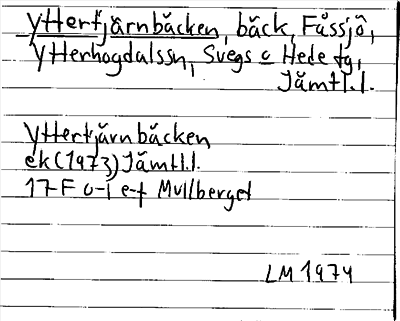 Yttertjärnbäcken, bäck, Fåssjö,
Ytterhogdalssn, Svegs o Hede tg,
Jämtl.l.
Yttertjärnbäcken
ek (1973) Jämtl.l.
17F o-i e-f Mullberget
LM 1974